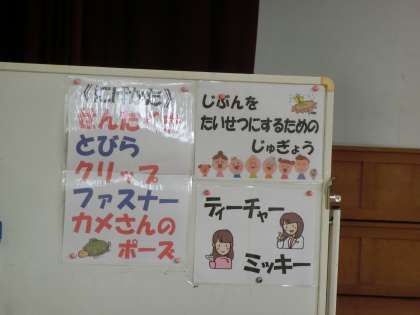 《にげかた》
せんたくき
とびら
クリップ
ファスナー
カメさんの
ポーズ
じぶんを
たいせつにするための
じゅぎょう
ティーチャー
ミッキー